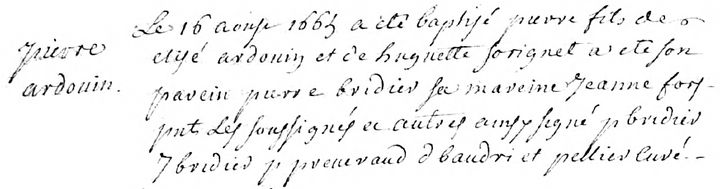 pierre
ardouin.
Le 16 aoust 1665 a eté baptisé pierre fils de
elisé ardouin et de huguette sorignet a eté son
parein pierre bridier sa mareine Jeanne fors
pnt Les soussignés et autres ainsy signé p bridier
J bridier p preueraud d baudri et pellier Curé.